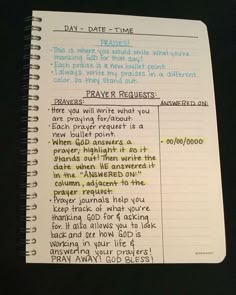 DAY - DATE - TIME
PRAISES!
· This is where you would write what you're
thanking GOD for that day!
· Each praise is a new bullet point.
· I always write my praises in a different
color, so they stand out.
PRAYER REQUESTS:
PRAYERS: ANSWERED ON:
· Here you will write what you
are praying for/about.
· Each prayer request is a
new bullet point.
· When GOD answers a - 00/00/0000
prayer, highlight it so it
stands out! Then write the
date when HE answered it
in the "ANSWERED ON:"
column, adjacent to the
prayer request.
· Prayer journals help you
keep track of what you're
thanking GOD for & asking
for. It also allows you to look
back and see how GOD is
working in your life &
answering your prayers!
PRAY AWAY! GOD BLESS!